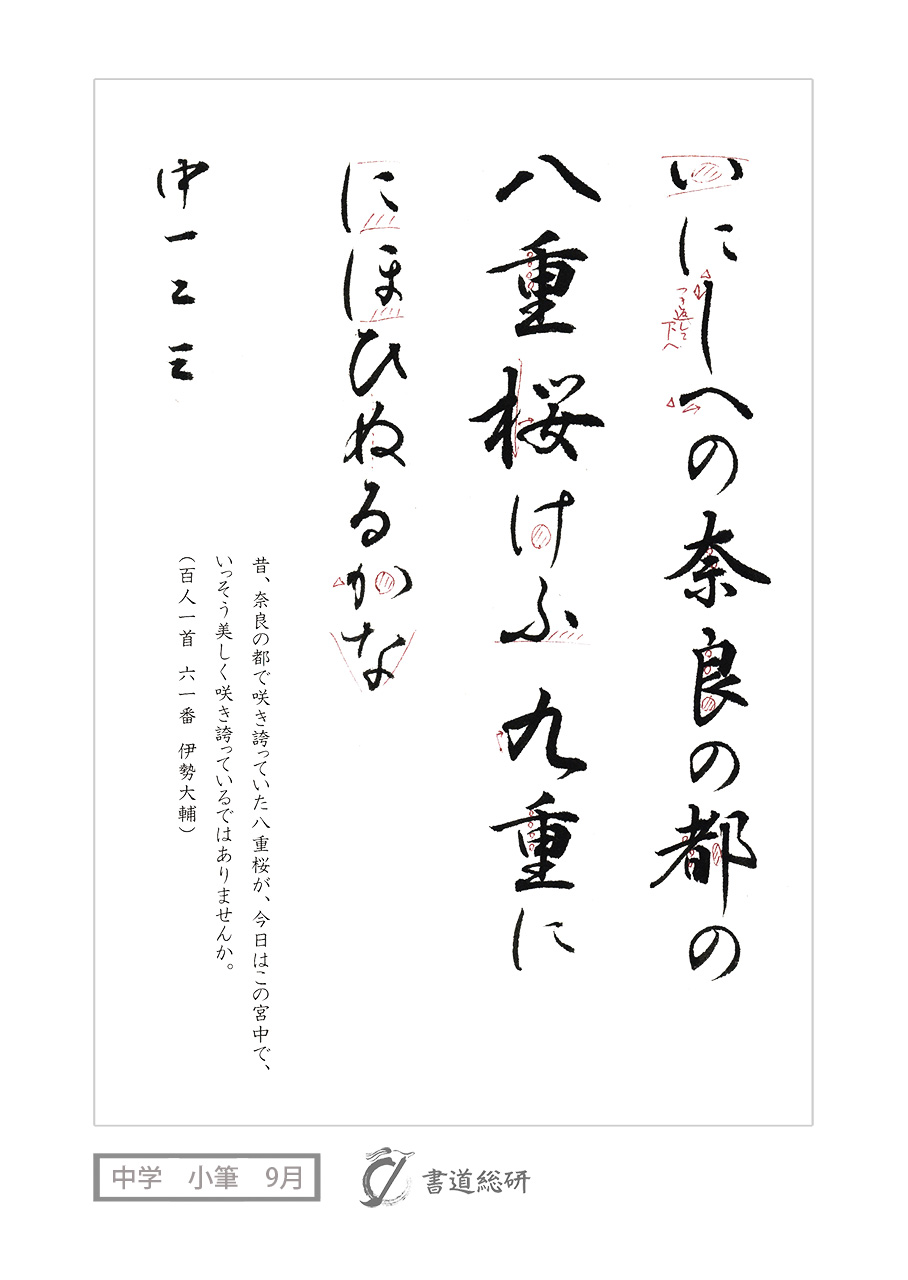 いにしへの奈良の都の
つき返して
下へ
八重桜けふ九重に
にほひぬるかな
中一二三
昔、奈良の都で咲き誇っていた八重桜が、今日はこの宮中で、
いっそう美しく咲き誇っているではありませんか。
（百人一首 六一番 伊勢大輔）
中学 小筆 9月
書道総研